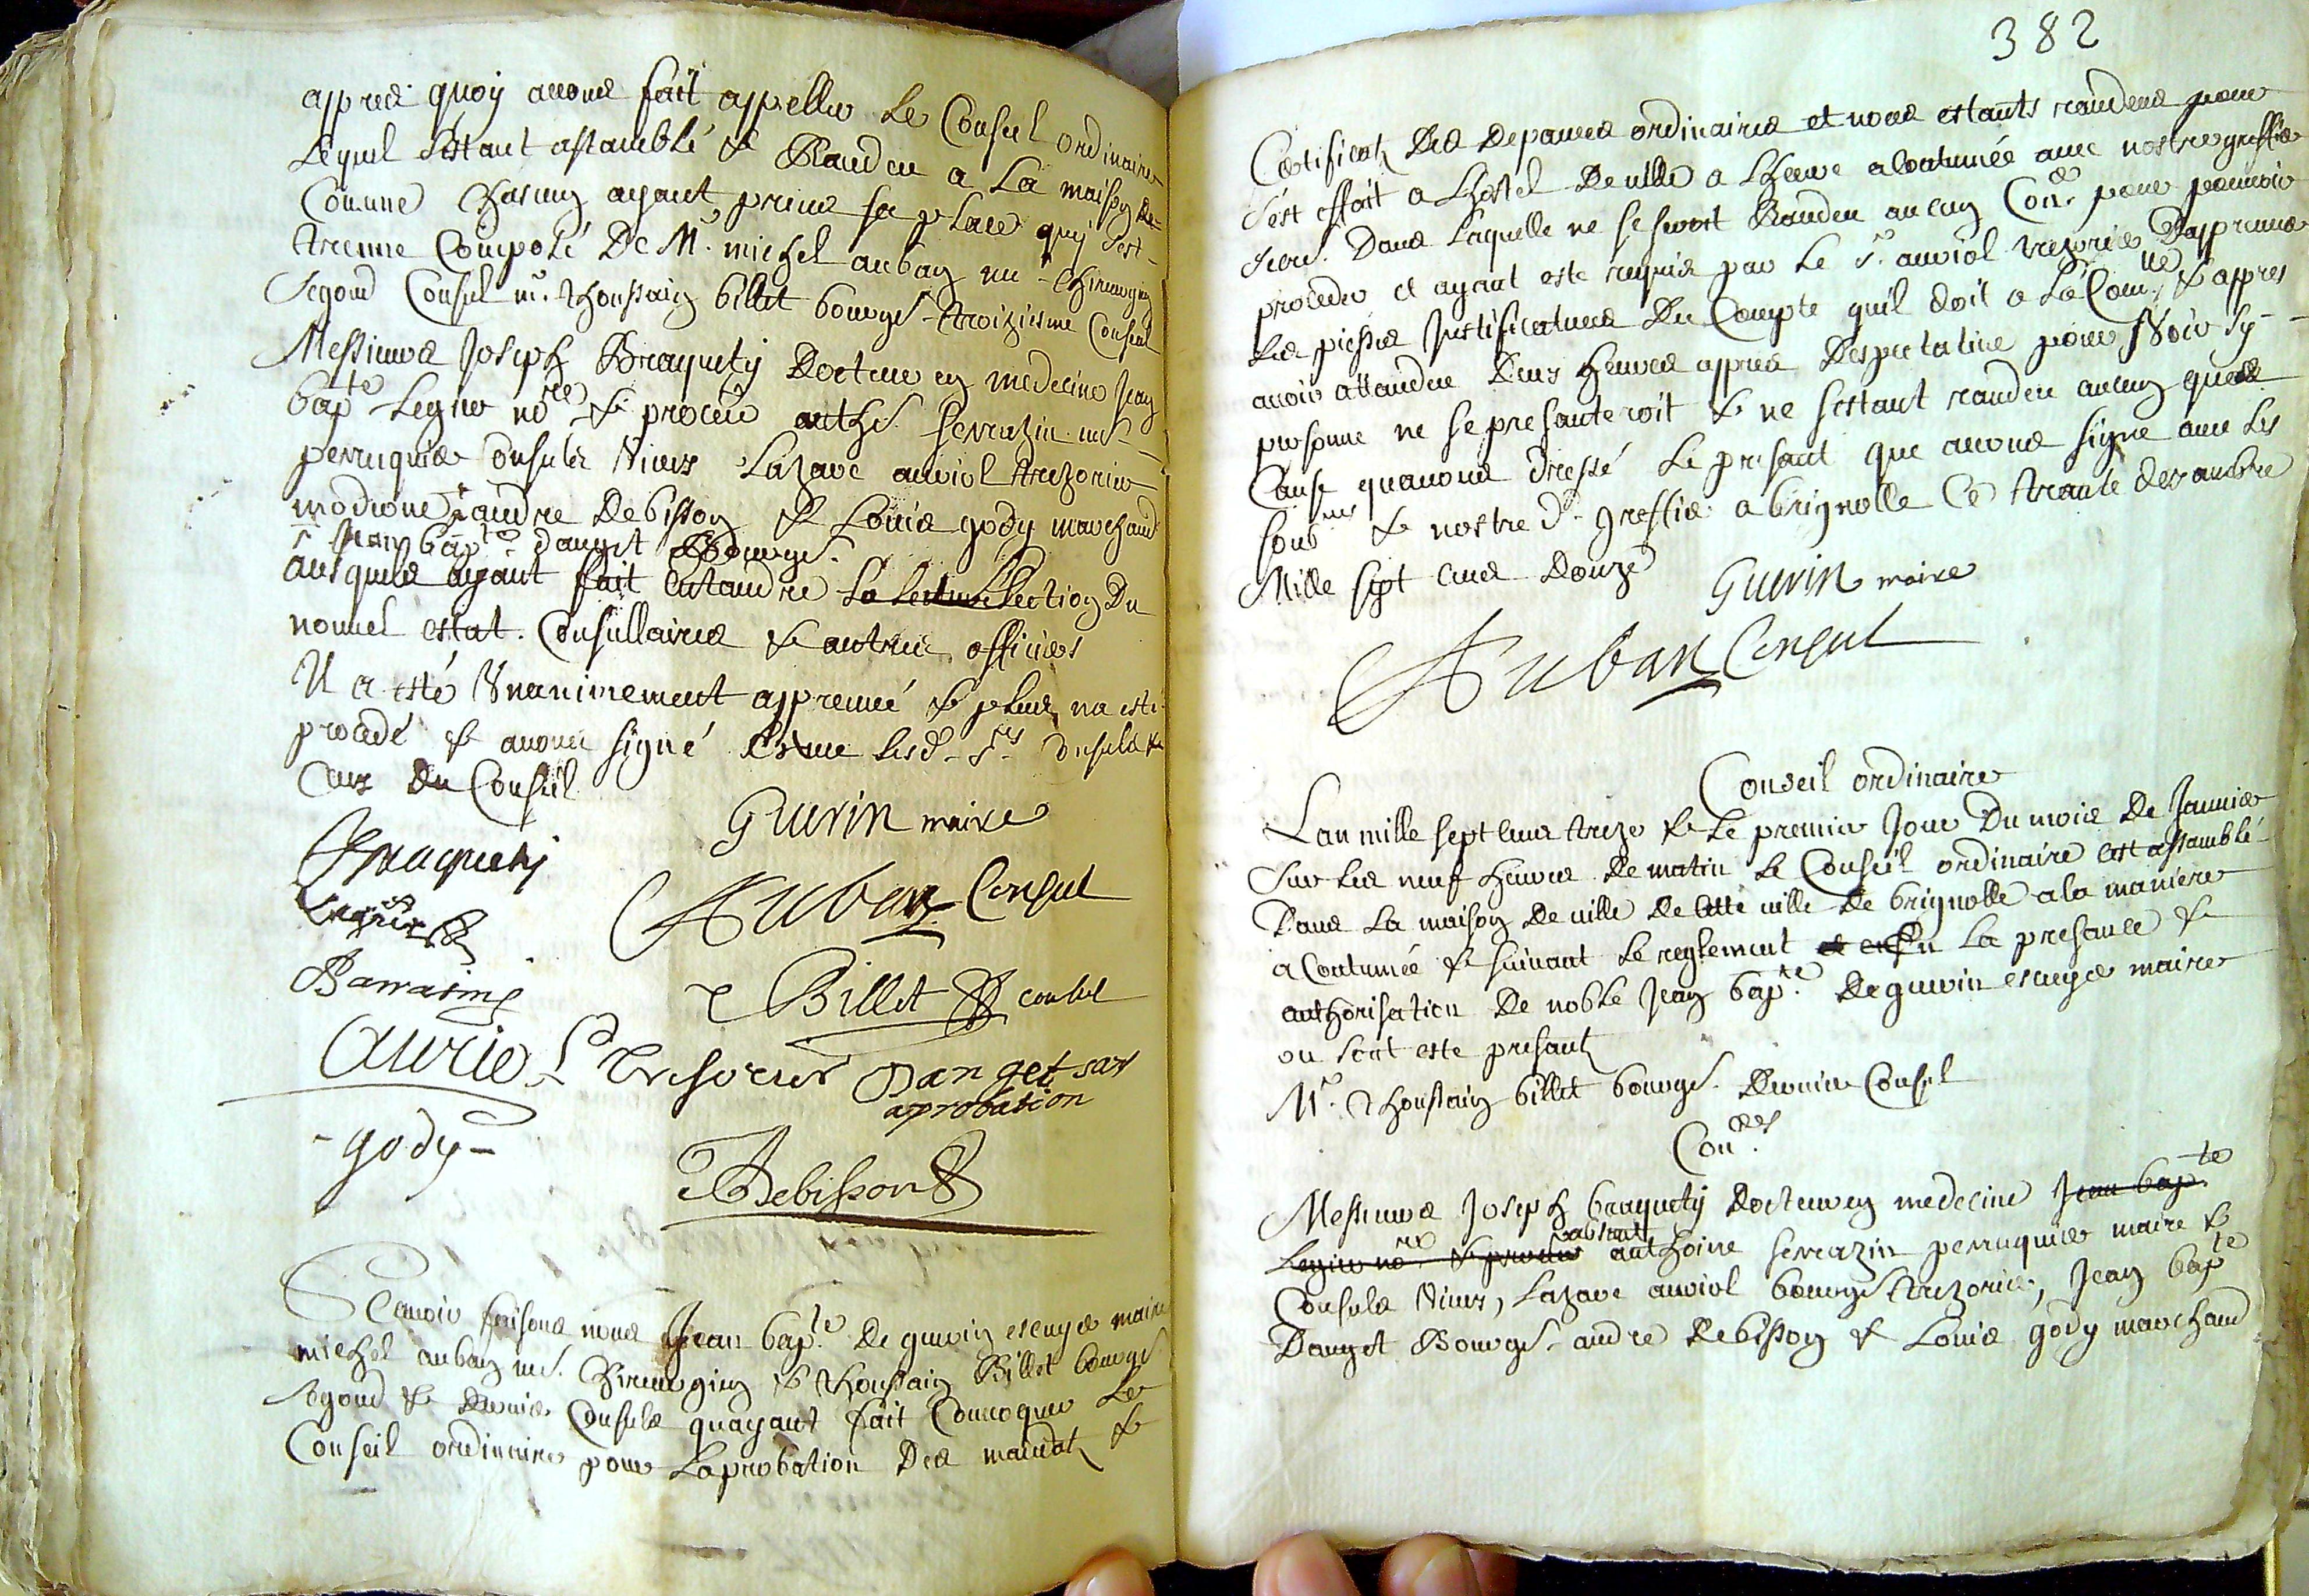 appres quoy avons fait appeller Le Conseil ordinaire
Lequel s'estant assamblé & Randeu a La maison de
Commune Chascung ayant prins sa place quy s'est
treuvue Composé De Mr. michel auban me Chirurgien
segond Consul Mr. Thoussaing billet bourgs. troiziesme Consul
Messieurs Joseph Braquety Docteur en medecine Jean
bapte. Legier nore. & procur. anthe. serrazin me.
perruquier Consuls Vieux Lazare auriol trezorier
moderne andre Debisson & Louis gody marchand
sr. Jean bapte. dauget Bourgs.
ausquels ayant fait entandre La Lecture Election Du
nouvel estat. Consullaires & autres officiers
Il a esté Unanimement appreuvé & plus na esté
procedé & avons signé Avec Lesd. srs. Consuls &
Ceux Du Conseil
Guerin maire
Braquety
Auban Consul
Legier
Billet consul
Sarrasin
Auriol Tresorier Danget sar
aprobation
- gody -
Debisson
Scavoir faisons nous Jean bapte. De guerin escuyer maire
michel auban me. Chirurgien & Thoussaing Billet bourgs.
segond & Dernier Consuls quayant fait Convoquer Le
Conseil ordinaire pour Laprobation Des mandatz &
382
Certificatz Des Depances ordinaires et nous estants randeus pour
s'est effait a Lhostel De ville a Lheure acoutumée avec nostre greffier
secre. Dans Laquelle ne se seroit Randeu aucung Coner. pour pouvoir
proceder et ayant este requis par Le sr. auriol trezorier Dappreuver
Les piesses Justificatives Du Compte quil doit a La Comune. & appres
avoir attandeu Deux Heures appres Despectative pour Voir sy
personne ne se presanteroit & ne s'estant randeu aucung quelle
Cause quavons dressé Le presant que avons signe avec Les
sous & nostre d. greffier a brignolle Ce trante desambre
Mille sept cens Douze
Guerin maire
Auban Consul
Conseil ordinaire
Lan mille sept cens treze & Le premier Jour Du mois De Janvier
sur Les neuf Heures De matin Le Conseil ordinaire est assamblé
Dans La maison De ville De cette ville De brignolle a la maniere
a Coutumée & suivant Le reglement et en La presance &
authorisation De noble Jean bapte. De guerin escuyer maire
ou sont este presantz
Mr. Thoussaing billet bourgs. Dernier Consul
Coners.
Messieurs Joseph braquety Docteur en medecine Jean bapte.
Legier nore. & procur absant anthoine serrazin perruquier maire &
Consuls Vieux, Lazare auriol bourgs. trezorier, Jean bapte
Dauget Bourgs. andre Debisson & Louis gody marchand